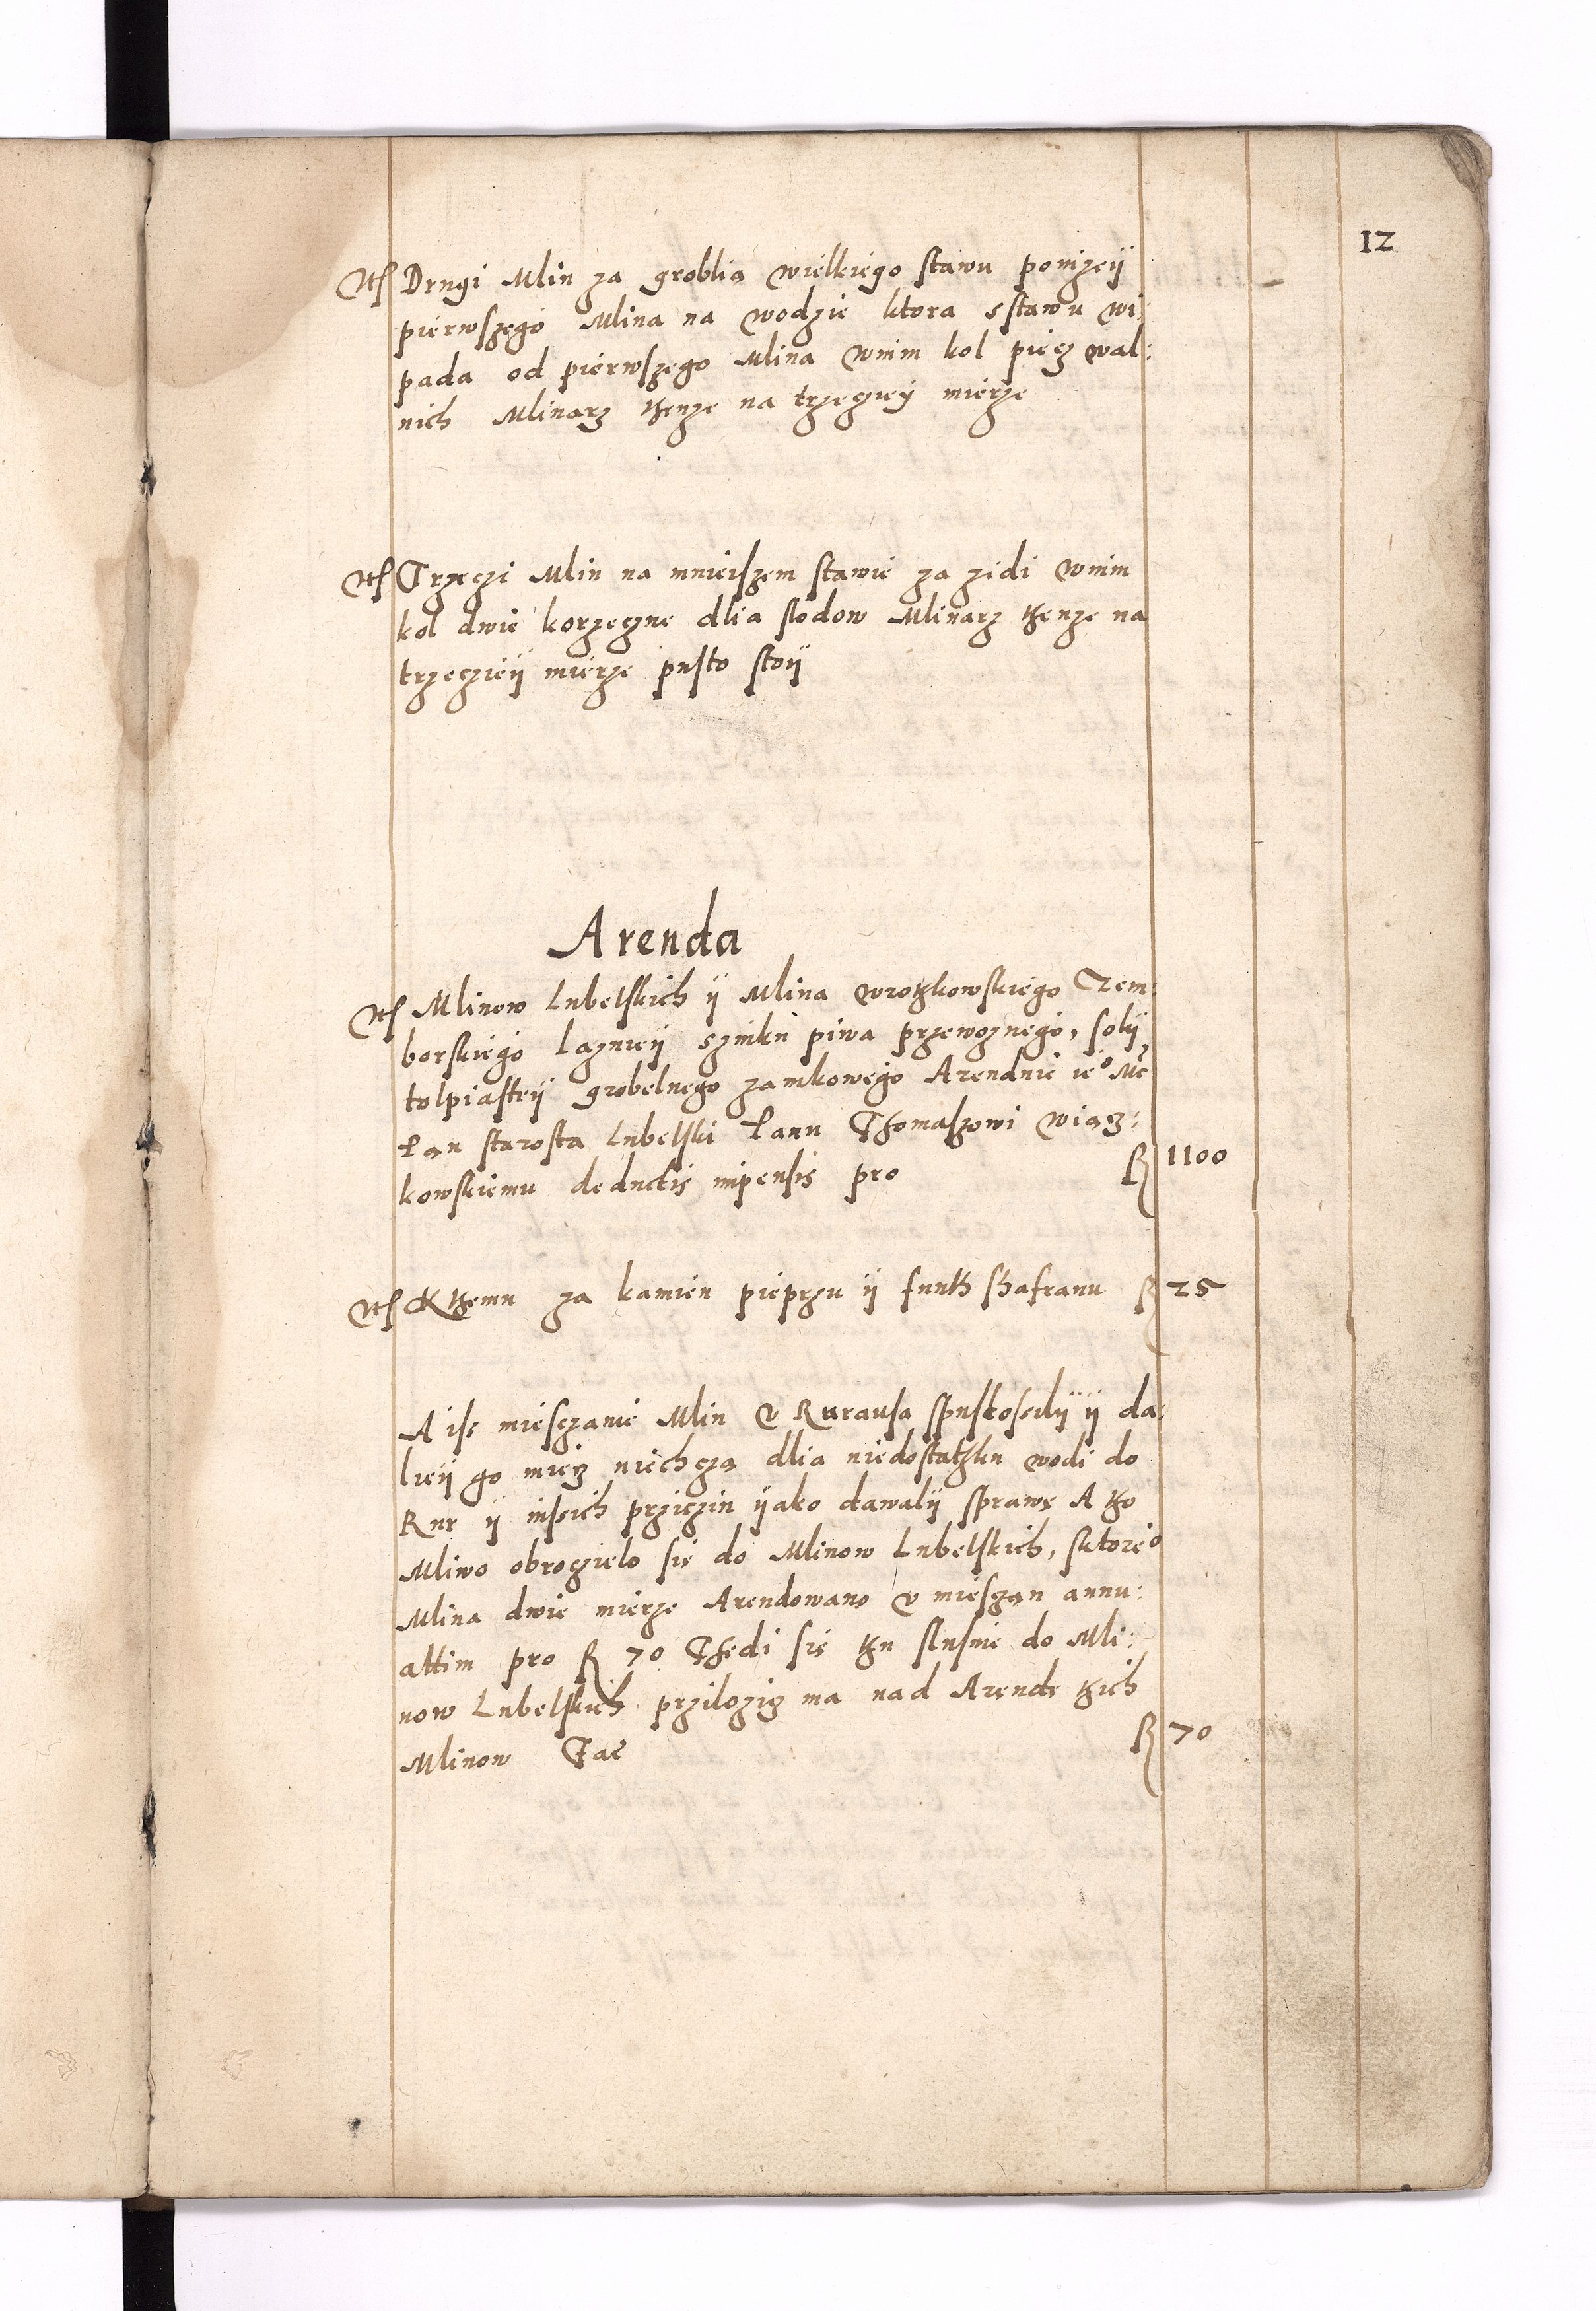 12
Itē Drugi Mlin za groblią wielkiego stawu ponizeÿ
pierwszego Mlina na wodzie ktora sstawu wi:
pada od pierwszego Mlina wnim kol piecz wal:
nich Mlinarz thenze na trzecziey mierze
Itē Trzeczi Mlin na mnieiszem stawie za zidi wnim
kol dwie korzeczne dlia slodow Mlinarz thenze na
trzeczieÿ mierze pusto stoÿ
Arenda
Itē Mlinow Lubelskich ÿ Mlina wrothkowskiego Tem:
borskiego laznieÿ szinku piwa przewoznego, solÿ
tolpiasteÿ grobelnego zamkowego Arenduie ie° Mć
Pan starosta Lubelski Panu Thomaszowi wiącz:
kowskiemu deductis inpensis pro R 1100
Itē K themu za kamien pieprzu ÿ funth shafranu R 25
A ise miesczanie Mlin v Rurausa spustoselÿ ÿ da:
lieÿ go miecz niechczą dlia niedostathku wodi do
Rur ÿ inseich przyczin ÿako dawalÿ sprawę A tho
Mliwo obroczielo się do Mlinow Lubelskich, sktore°
Mlina dwie mierze Arendowano v miesczan annu:
attim pro R 70 Thedi się thu slusnie do Mli:
now Lubelskich przilozicz ma nad Arendę thich
Mlinow Fac̄ R 70